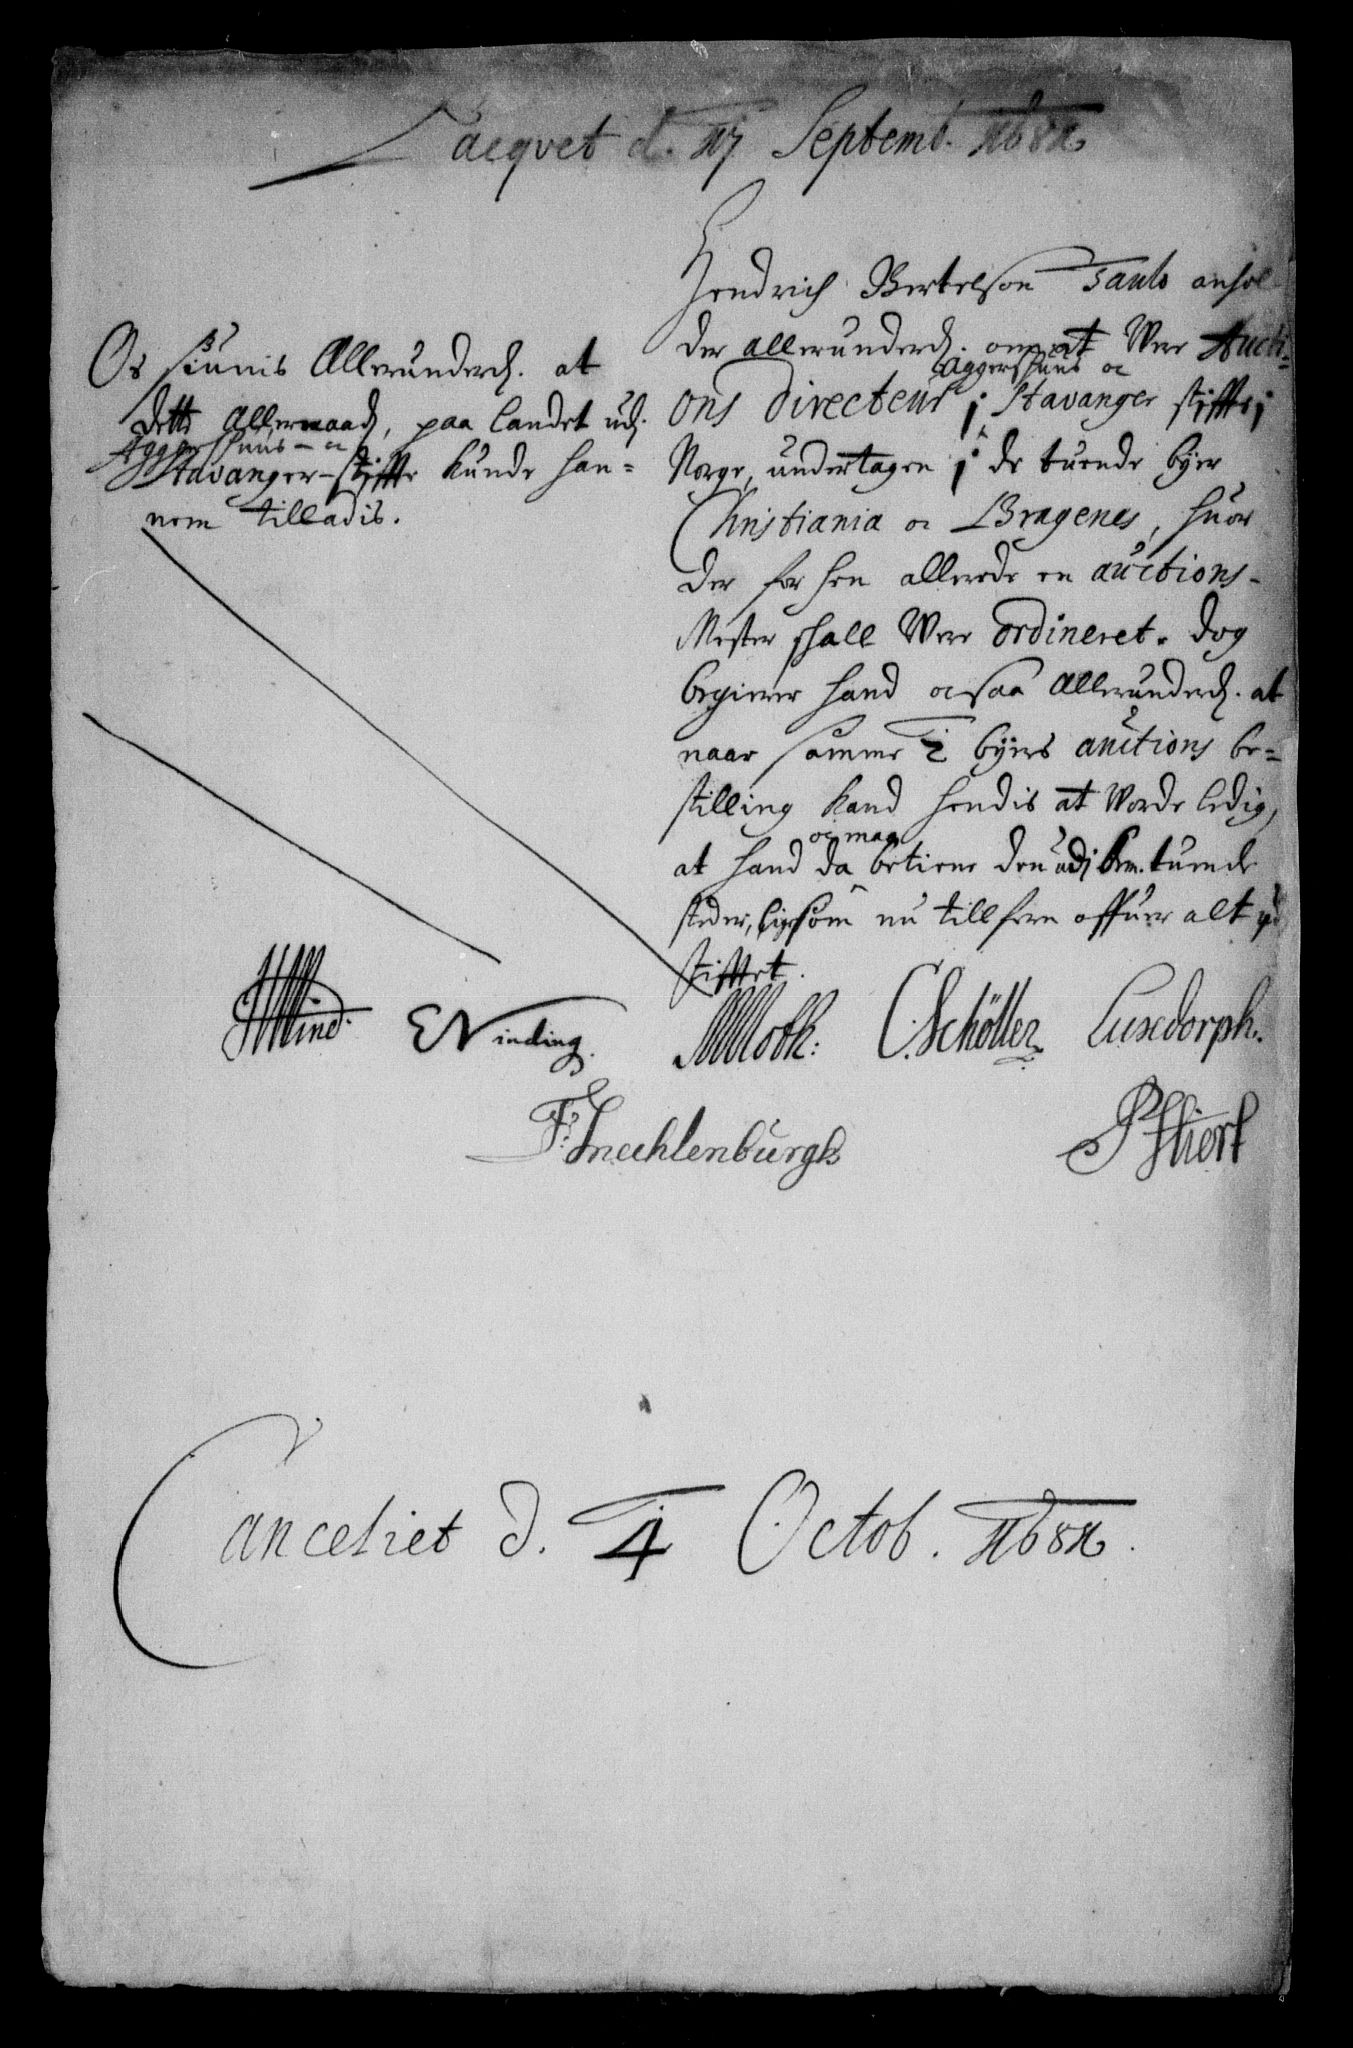 Lacqvet d. 17 Septemb. 1681
Hendrich Bertelsøn anhol
der allerunderd. om at Were Aucti-
Aggershuus oc
ons Directeur i Stavanger stiffte i
Norge, undertagen i de tuende byer
Christiania oc Bragenes, huor
der før hen allerede en auctions-
Mester shall Were ordineret. Dog
begierer hand ocsaa Allerunderd. at
naar samme 2 byers auctions be=
stilling kand hendis at Vorde ledig,
oc maa
at hand da betiene den udj bem. tuende
steder, ligesom nu tillforn offuer alt
stifftet.
Os siunis Allerunderd. at
dette Allernaad, paa landet udj
Aggershuus - oc
Stavanger-stiffte kunde han=
nem tilladis.
JWind. ENinding. MMoth: C. Schöller Luxdorph.
F: Mecklenburgh PHiort
Canceliet d. 4 Octob. 1681.